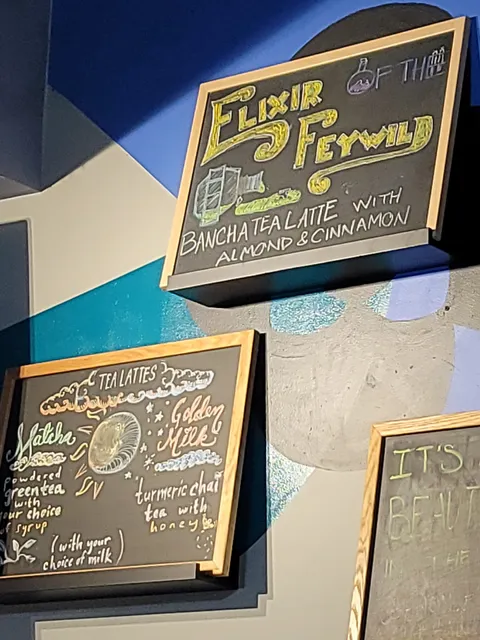 ELIXIR OF THE
FEYWILD
BANCHA TEA LATTE WITH
ALMOND & CINNAMON
TEA LATTES
Matcha
powdered
green tea
with
your choice
of syrup
Golden
Milk
turmeric chai
tea with
honey
(with your
choice of milk)
IT'S
BEAUT
THE